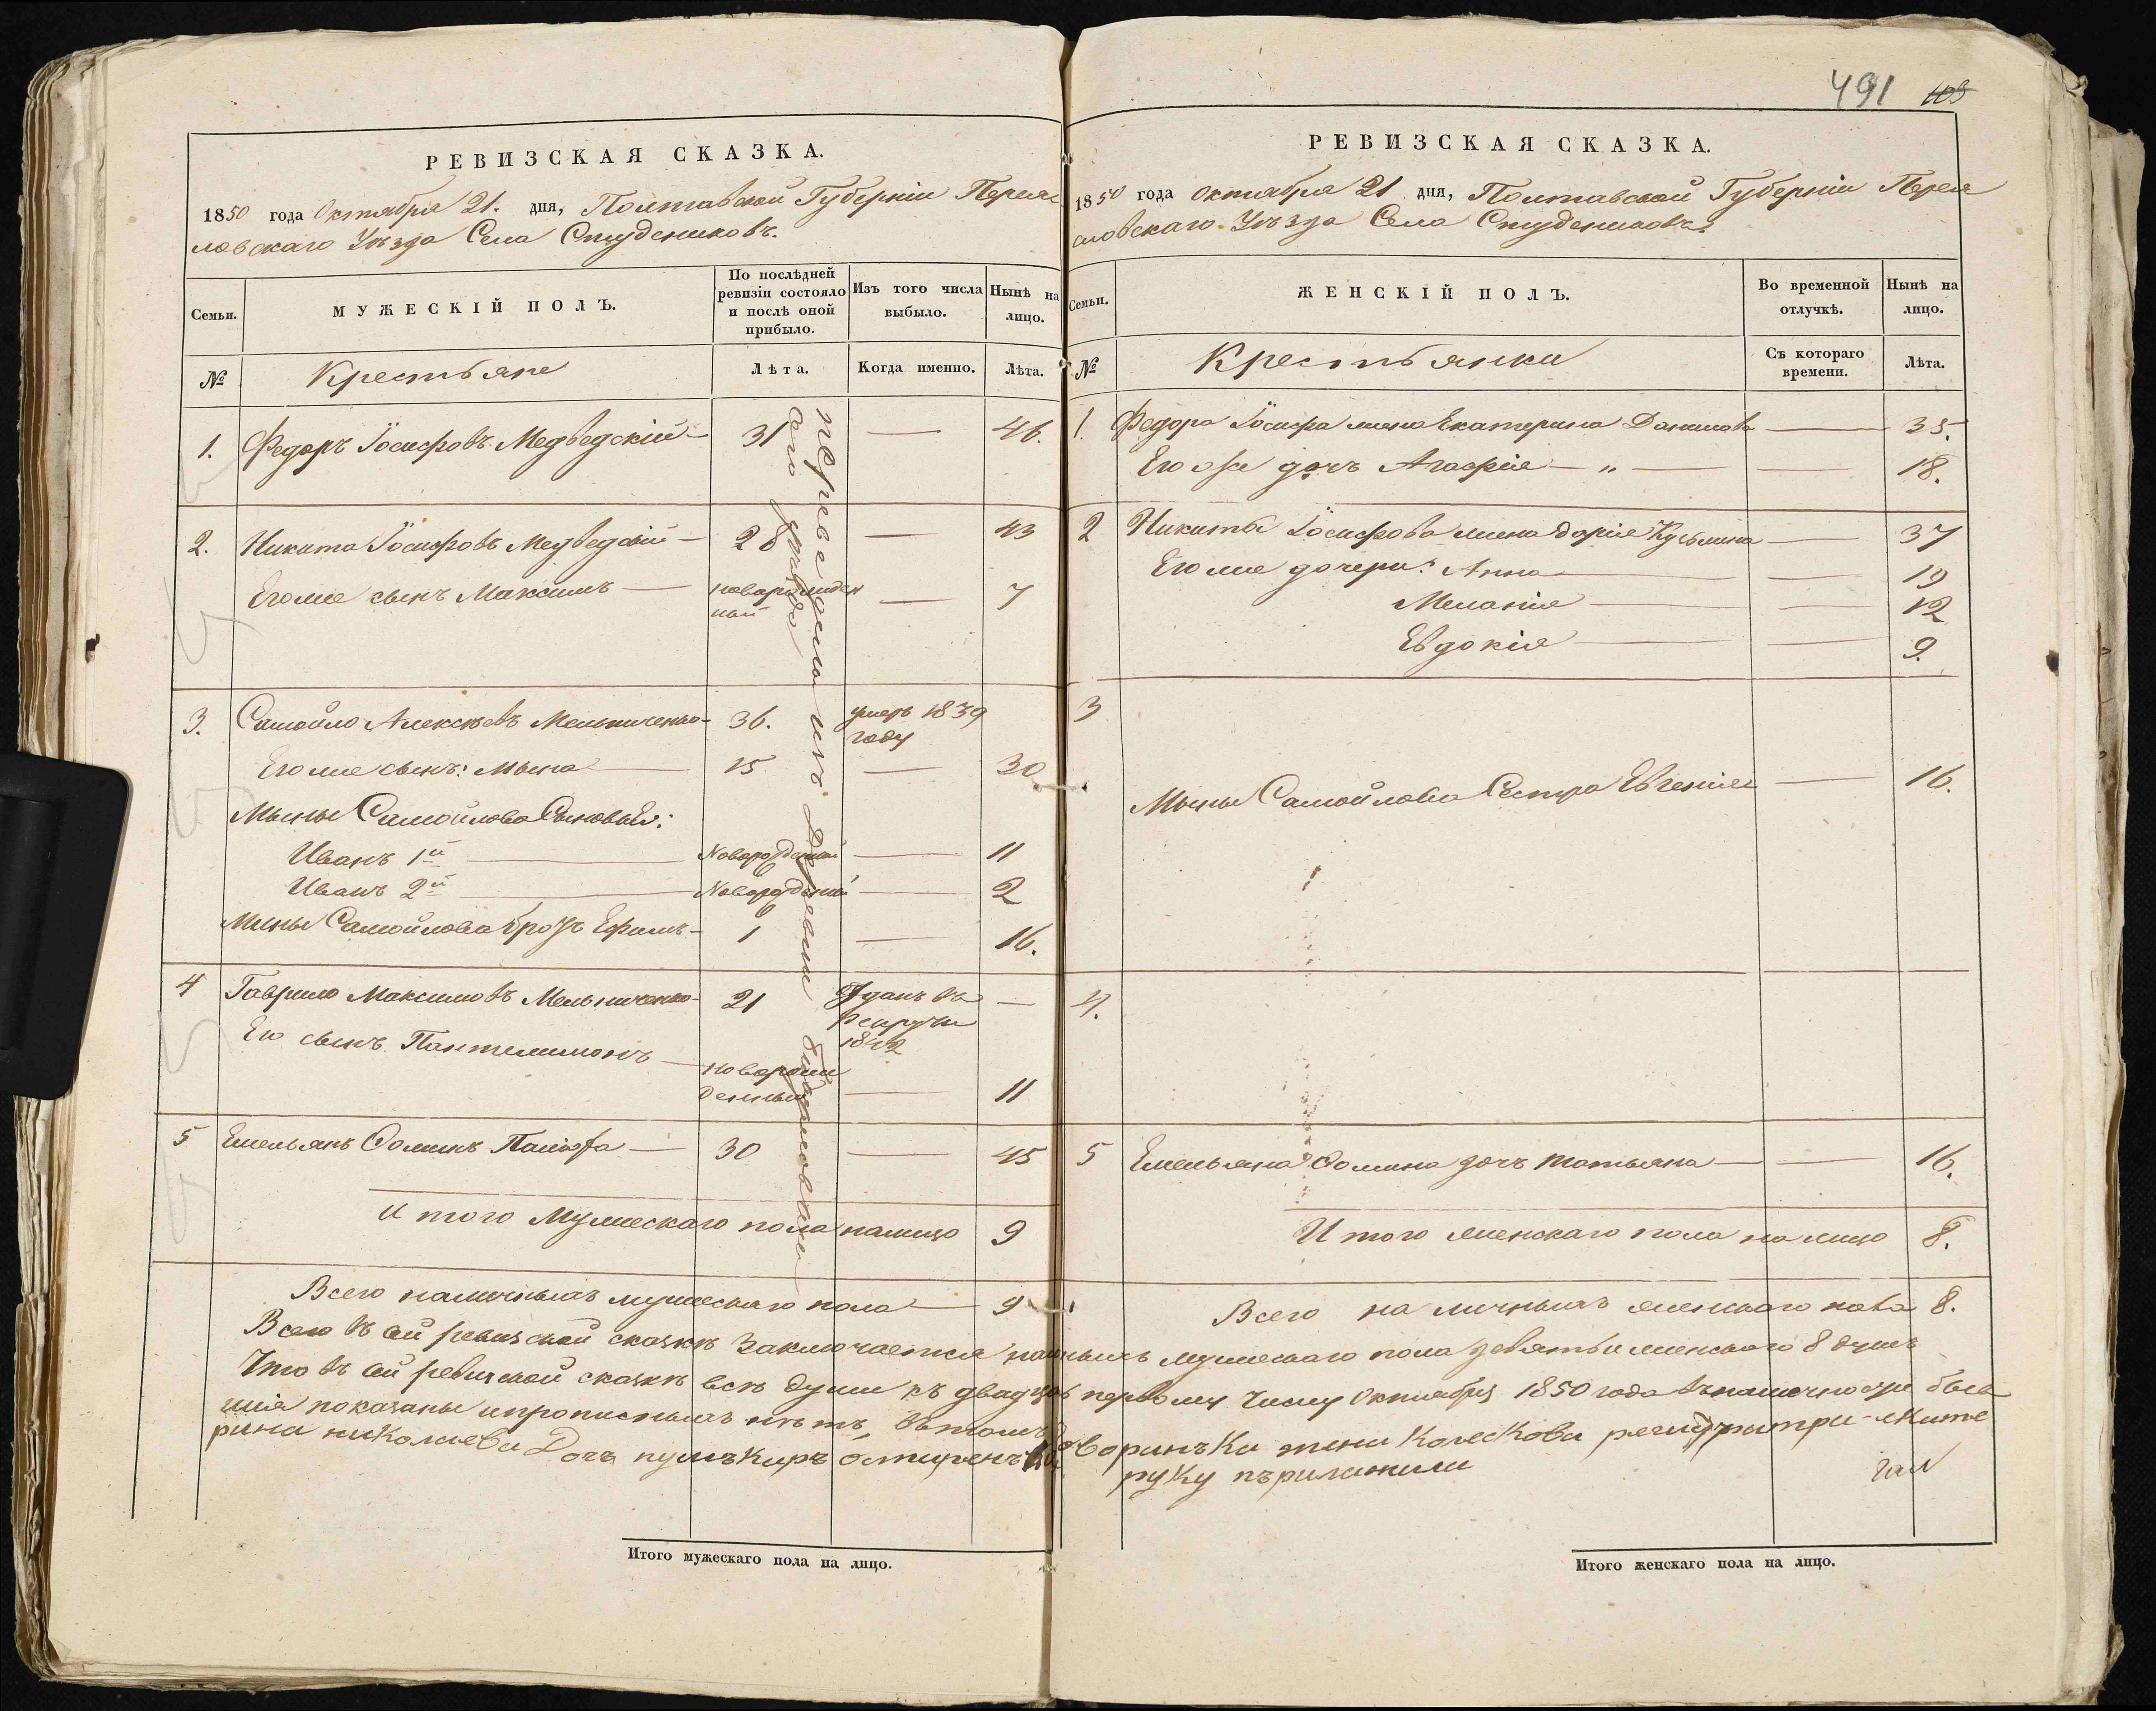 РЕВИЗСКАЯ СКАЗКА.
1850 года Октября 21. дня, Полтавской Губерніи Переяс
лавскаго Уѣзда Села Студениковъ.
Семьи.
МУЖЕСКІЙ ПОЛЪ.
По послѣдней ревизіи состояло и послѣ оной прибыло.
Изъ того числа выбыло.
Нынѣ на лицо.
№
Крестьяне
Лѣта.
Когда именно.
Лѣта.
1. Федоръ Іосифовъ Медведскій 31 — 46.
2. Никита Іосифовъ Медведскій 28 — 43
Его же сынъ Максимъ новорожден
ный — 7
3. Самойло Алексѣевъ Мельниченко 36. умеръ 1839
году
Его же сынъ: Мына 15 — 30
Мыны Самойлова Сыновья:
Иванъ 1й Новорожденный — 11
Иванъ 2й Новорожденный — 2
Мины Самойлова братъ Ефимъ 1 — 16.
4 Гаврило Максимовъ Мельниченко 21 Отданъ въ —
Рекруты
1842
Его сынъ Пантелимонъ новорож
денный — 11
5 Емельянъ Фоминъ 30 — 45
Итого Мужескаго пола налицо 9
Всего наличныхъ мужескаго пола 9
переведены изъ деревни
сего уѣзда
491 103
РЕВИЗСКАЯ СКАЗКА.
1850 года Октября 21 дня, Полтавской Губерніи Перея
словскаго Уѣзда Села Студениковъ
Семьи.
ЖЕНСКІЙ ПОЛЪ.
Во временной отлучкѣ.
Нынѣ на лицо.
№
Крестьянки
Съ котораго времени.
Лѣта.
1. Федора Іосифа жена Екатерина Данилова — 35.
Его же дочь Агафія — " — 18.
2 Никиты Іосифова жена Дарія Кузьмина — 37
Его же дочери: Анна — 19
Меланія — 12
Евдокія — 9.
3
Мыны Самойлова Сестра Евгенія — 16.
4.
5 Емельяна Фомина дочь татьяна — 16.
Итого женскаго пола на лицо 8.
Всего на личныхъ женскаго пола 8.
Всего въ сей ревизской сказкѣ заключается наличныхъ мужескаго пола девять и женскаго 8 душъ
Что въ сей ревизской сказкѣ всѣ души къ двадцать первому числу Октября 1850 года въ наличности быв
шія показаны и прописныхъ нѣтъ, въ томъ дворинъка жена
рина николаева Дочь руку пъриложили
Итого мужескаго пола на лицо.
Итого женскаго пола на лицо.